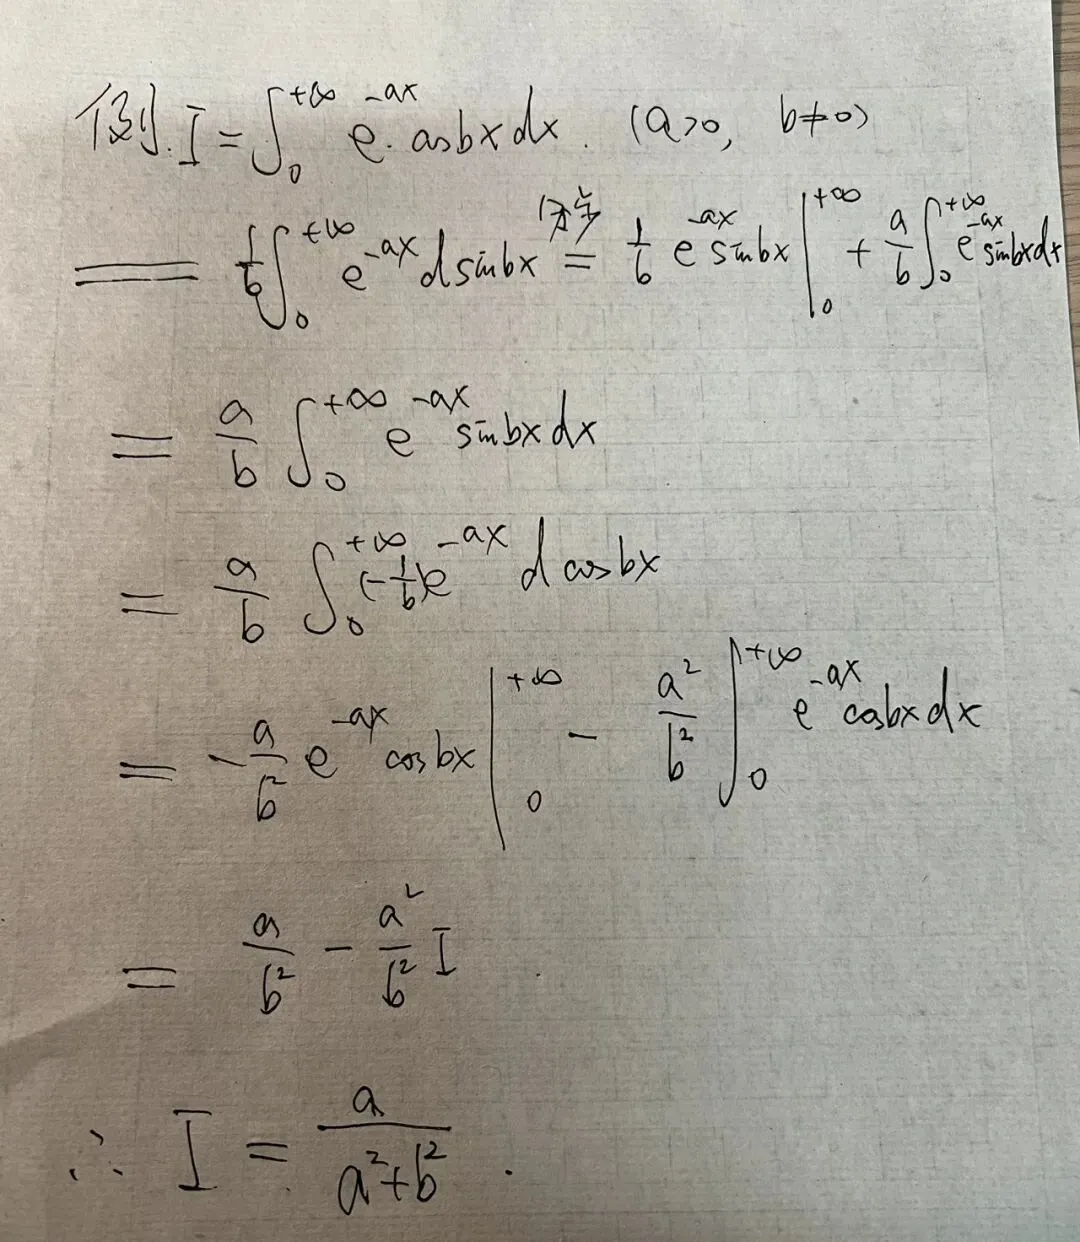 例. I = ∫₀^{+∞} e^{-ax}·cosbx dx. (a>0, b≠0)
= 1/b ∫₀^{+∞} e^{-ax} d sinbx 分部= 1/b e^{-ax} sinbx |₀^{+∞} + a/b ∫₀^{+∞} e^{-ax} sinbx dx
= a/b ∫₀^{+∞} e^{-ax} sinbx dx
= a/b ∫₀^{+∞} (-1/b) e^{-ax} d cosbx
= -a/b² e^{-ax} cosbx |₀^{+∞} - a²/b² ∫₀^{+∞} e^{-ax} cosbx dx
= a/b² - a²/b² I
∴ I = a/(a²+b²).